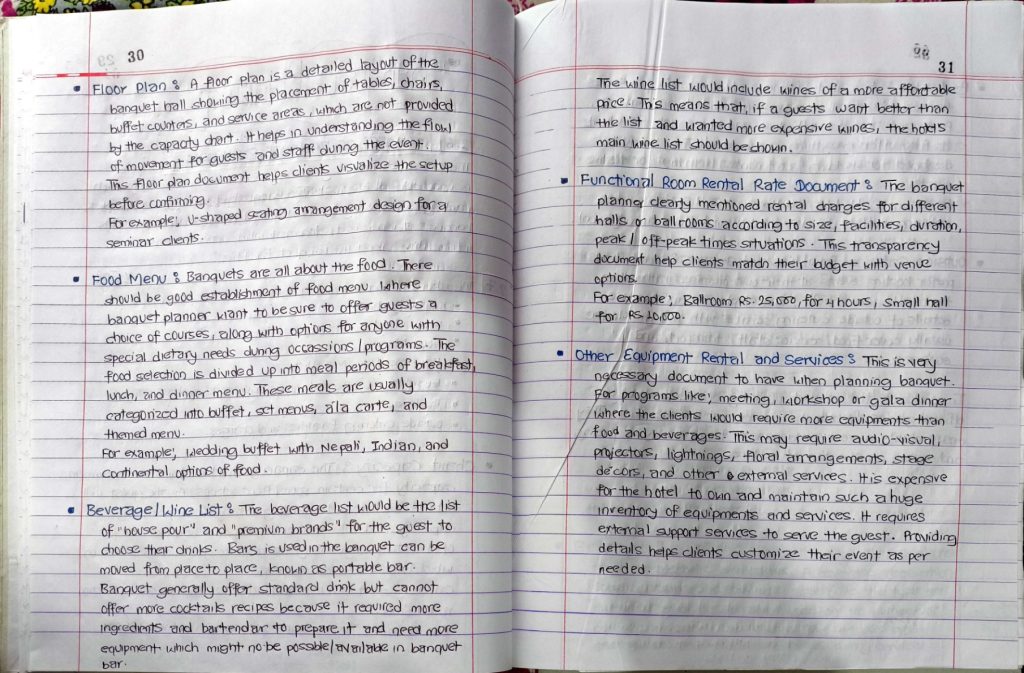 30
• Floor Plan : A floor plan is a detailed layout of the
banquet hall showing the placement of tables, chairs,
buffet counters, and service areas, which are not provided
by the capacity chart. It helps in understanding the flow
of movement for guests and staff during the event.
This floor plan document helps clients visualize the setup
before confirming.
For example; U-shaped seating arrangement design for a
seminar clients.
• Food Menu : Banquets are all about the food. There
should be good establishment of food menu where
banquet planner want to be sure to offer guests a
choice of courses, along with options for anyone with
special dietary needs during occassions/programs. The
food selection is divided up into meal periods of breakfast,
lunch, and dinner menu. These meals are usually
categorized into buffet, set menus, a'la carte, and
themed menu.
For example; wedding buffet with Nepali, Indian, and
continental options of food.
• Beverage/Wine List : The beverage list would be the list
of "house pour" and "premium brands" for the guest to
choose their drinks. Bars is used in the banquet can be
moved from place to place, known as portable bar.
Banquet generally offer standard drink but cannot
offer more cocktails recipes because it required more
ingredients and bartendar to prepare it and need more
equipment which might no be possible/available in banquet
bar.
31
The wine list would include wines of a more affordable
price. This means that, if a guests want better than
the list and wanted more expensive wines, the hotels
main wine list should be shown.
• Functional Room Rental Rate Document : The banquet
planner clearly mentioned rental charges for different
halls or ballrooms according to size, facilities, duration,
peak / off-peak times situations. This transparency
document help clients match their budget with venue
options.
For example; Ballroom Rs. 25,000, for 4 hours, Small hall
for Rs 10,000.
• Other Equipment Rental and Services : This is very
necessary document to have when planning banquet.
For programs like; meeting, workshop or gala dinner
where the clients would require more equipments than
food and beverages. This may require audio-visual,
projectors, lightnings, floral arrangements, stage
decors, and other external services. It is expensive
for the hotel to own and maintain such a huge
inventory of equipments and services. It requires
external support services to serve the guest. Providing
details helps clients customize their event as per
needed.